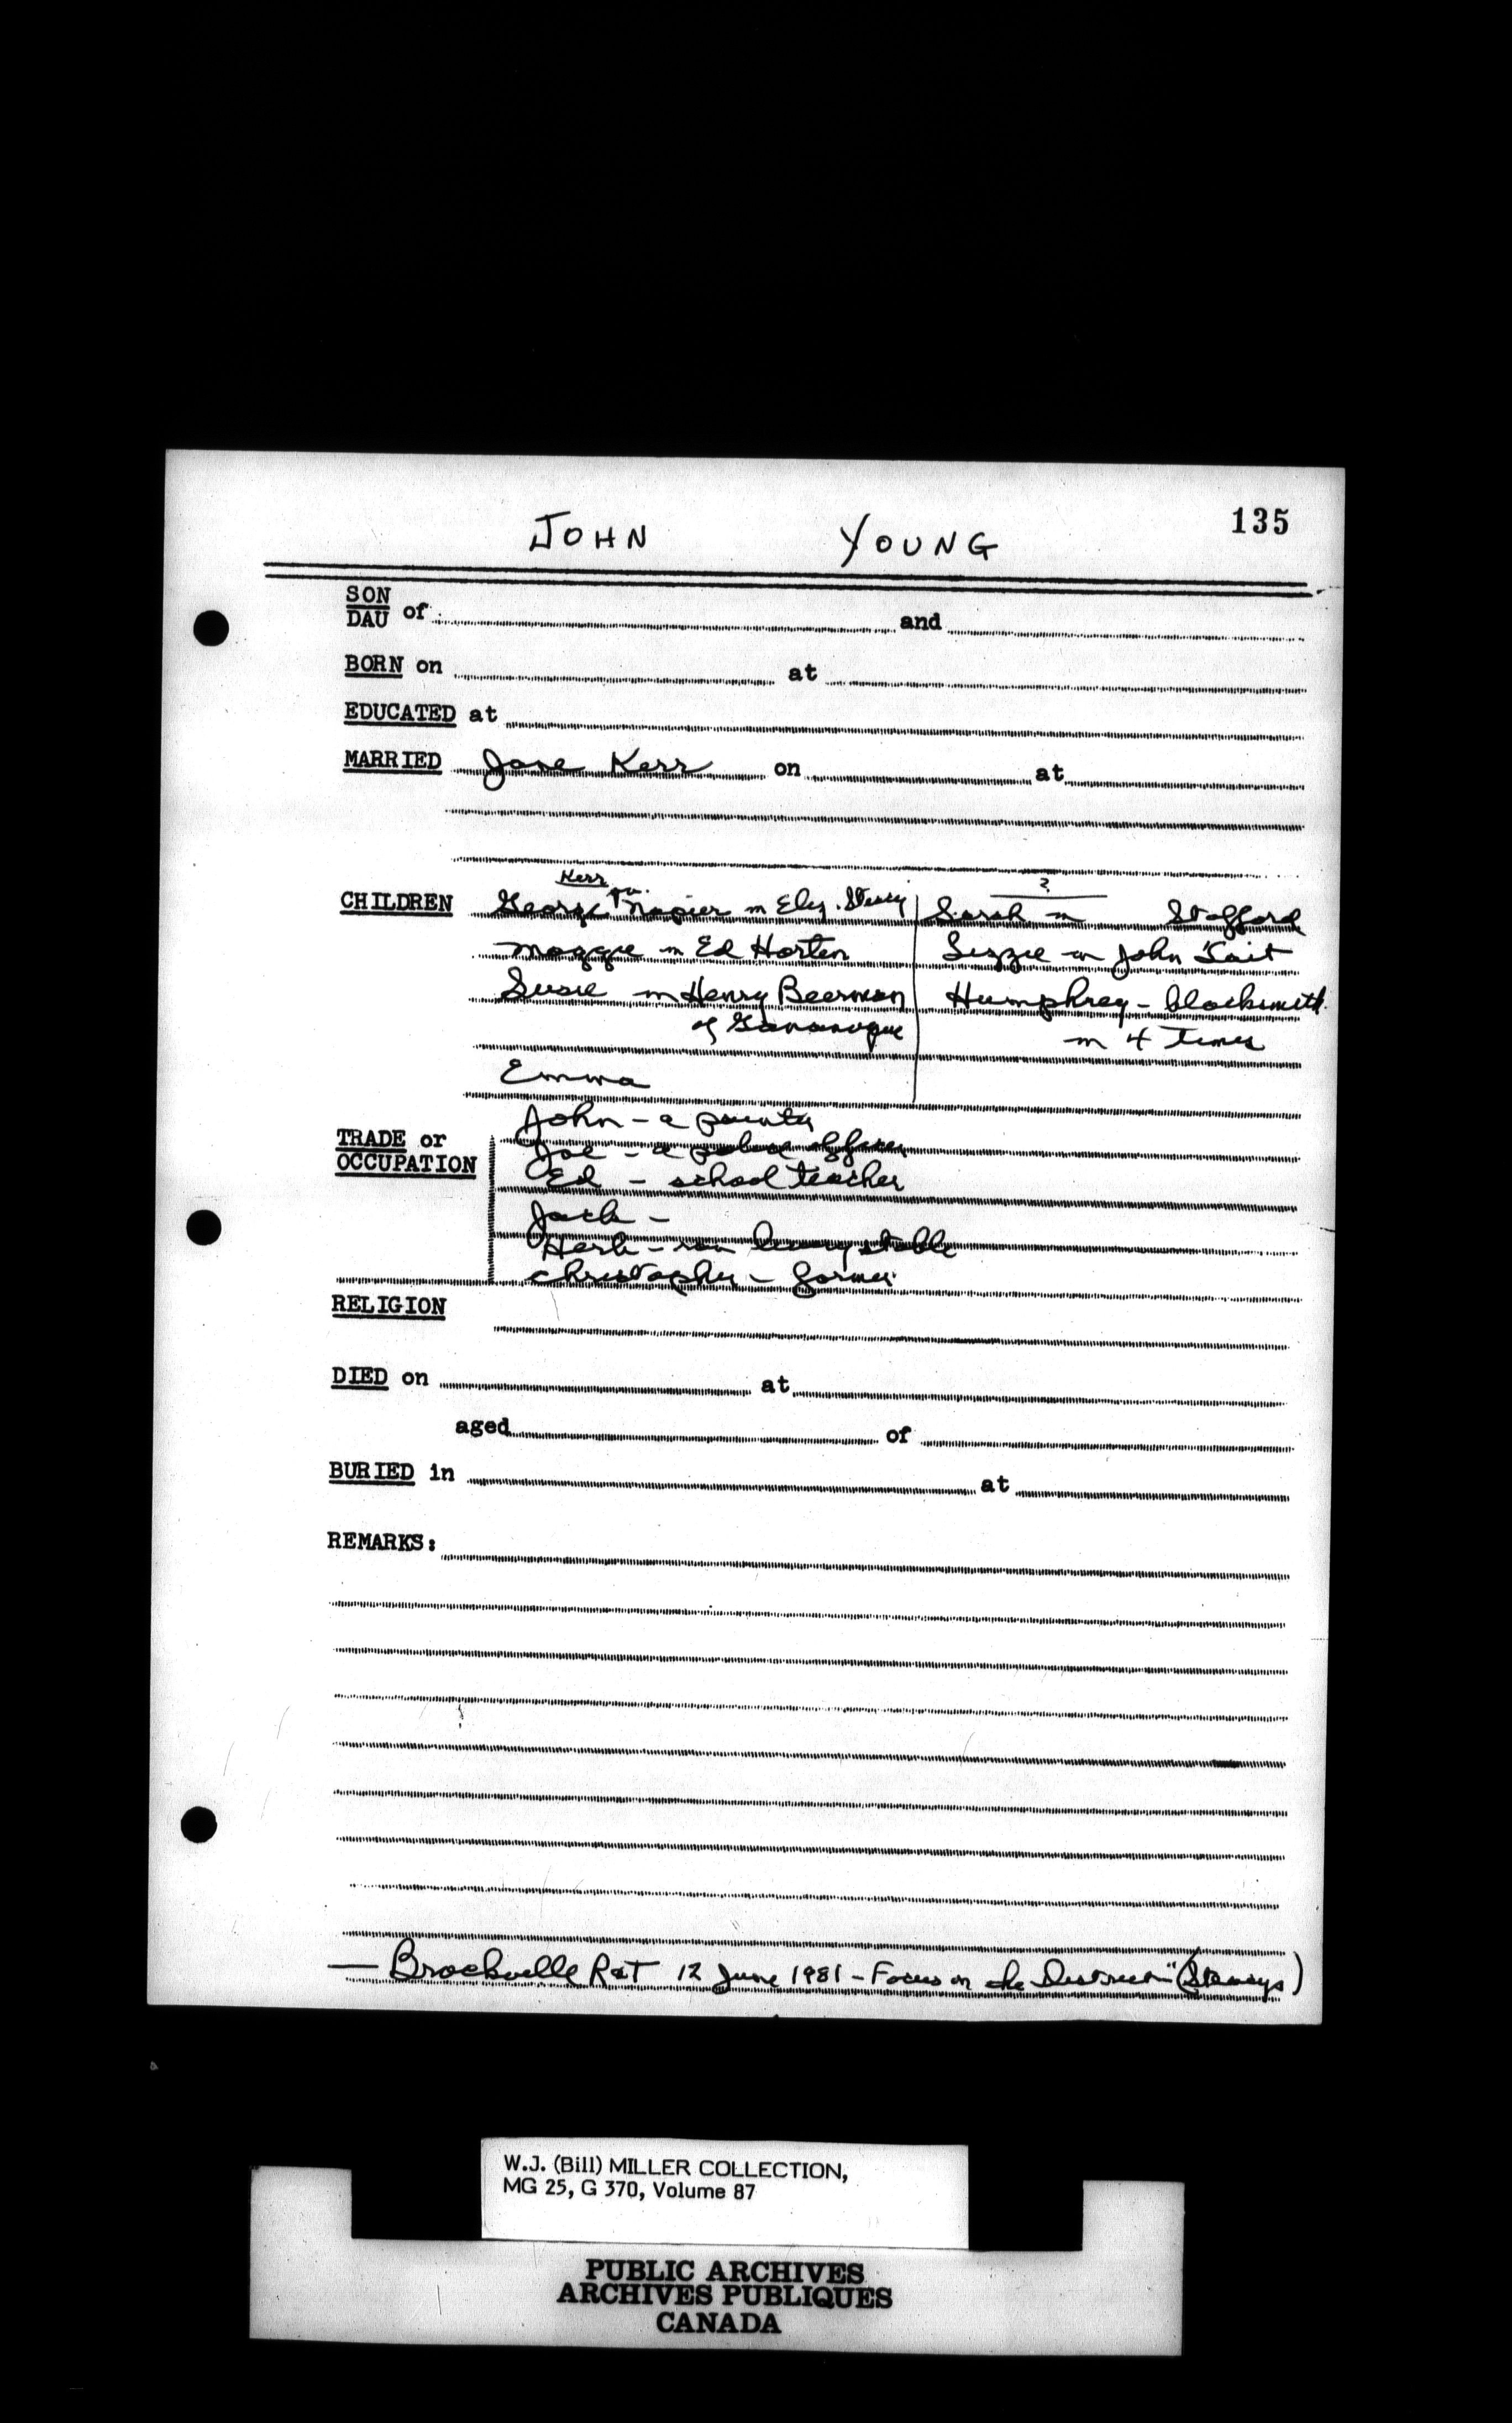 135
JOHN YOUNG
SON
DAU of and
BORN on at
EDUCATED at
MARRIED Jane Kerr on at
Kerr
?
CHILDREN George Napier m Eliz. Stacey Sarah m Stafford
Maggie m Ed Horton Lizzie m John Tait
Susie m Henry Beerman Humphrey - blacksmith
of Gananoque m 4 times
Emma
John - a painter
TRADE or Joe - a police officer
OCCUPATION Ed - school teacher
Jack -
Herb - ran livery stable
Christopher - farmer
RELIGION
DIED on at
aged of
BURIED in at
REMARKS:
— Brockville R&T 12 June 1981 - Focus on the District" (Staceys)
W.J. (Bill) MILLER COLLECTION,
MG 25, G 370, Volume 87
PUBLIC ARCHIVES
ARCHIVES PUBLIQUES
CANADA